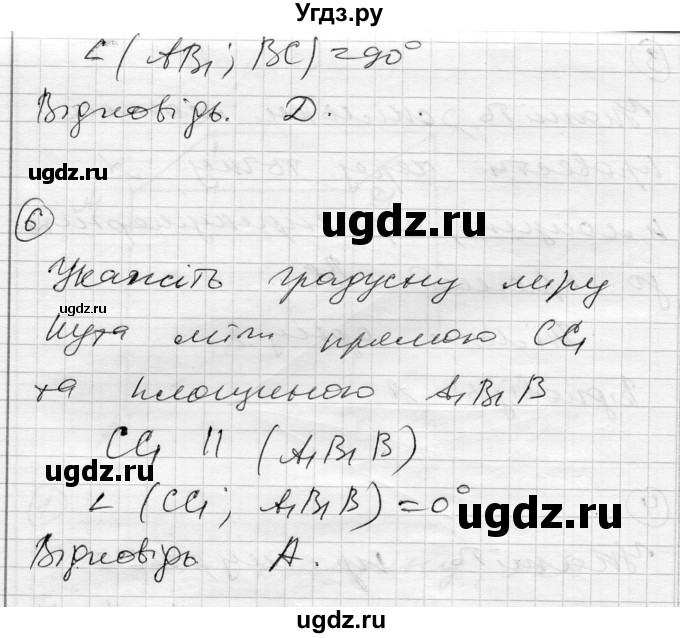 Угдз.ру
∠(AB₁; BC) = 90°
Відповідь. D.
ugdz.ru
ugdz.ru
6
Укажіть градусну міру
ugdz.ru
кута між прямою CC₁
та площиною A₁B₁B
CC₁ || (A₁B₁B)
ugdz.ru
∠(CC₁; A₁B₁B) = 0°
ugdz.ru
Відповідь A.
ugdz.ru
ugdz.ru